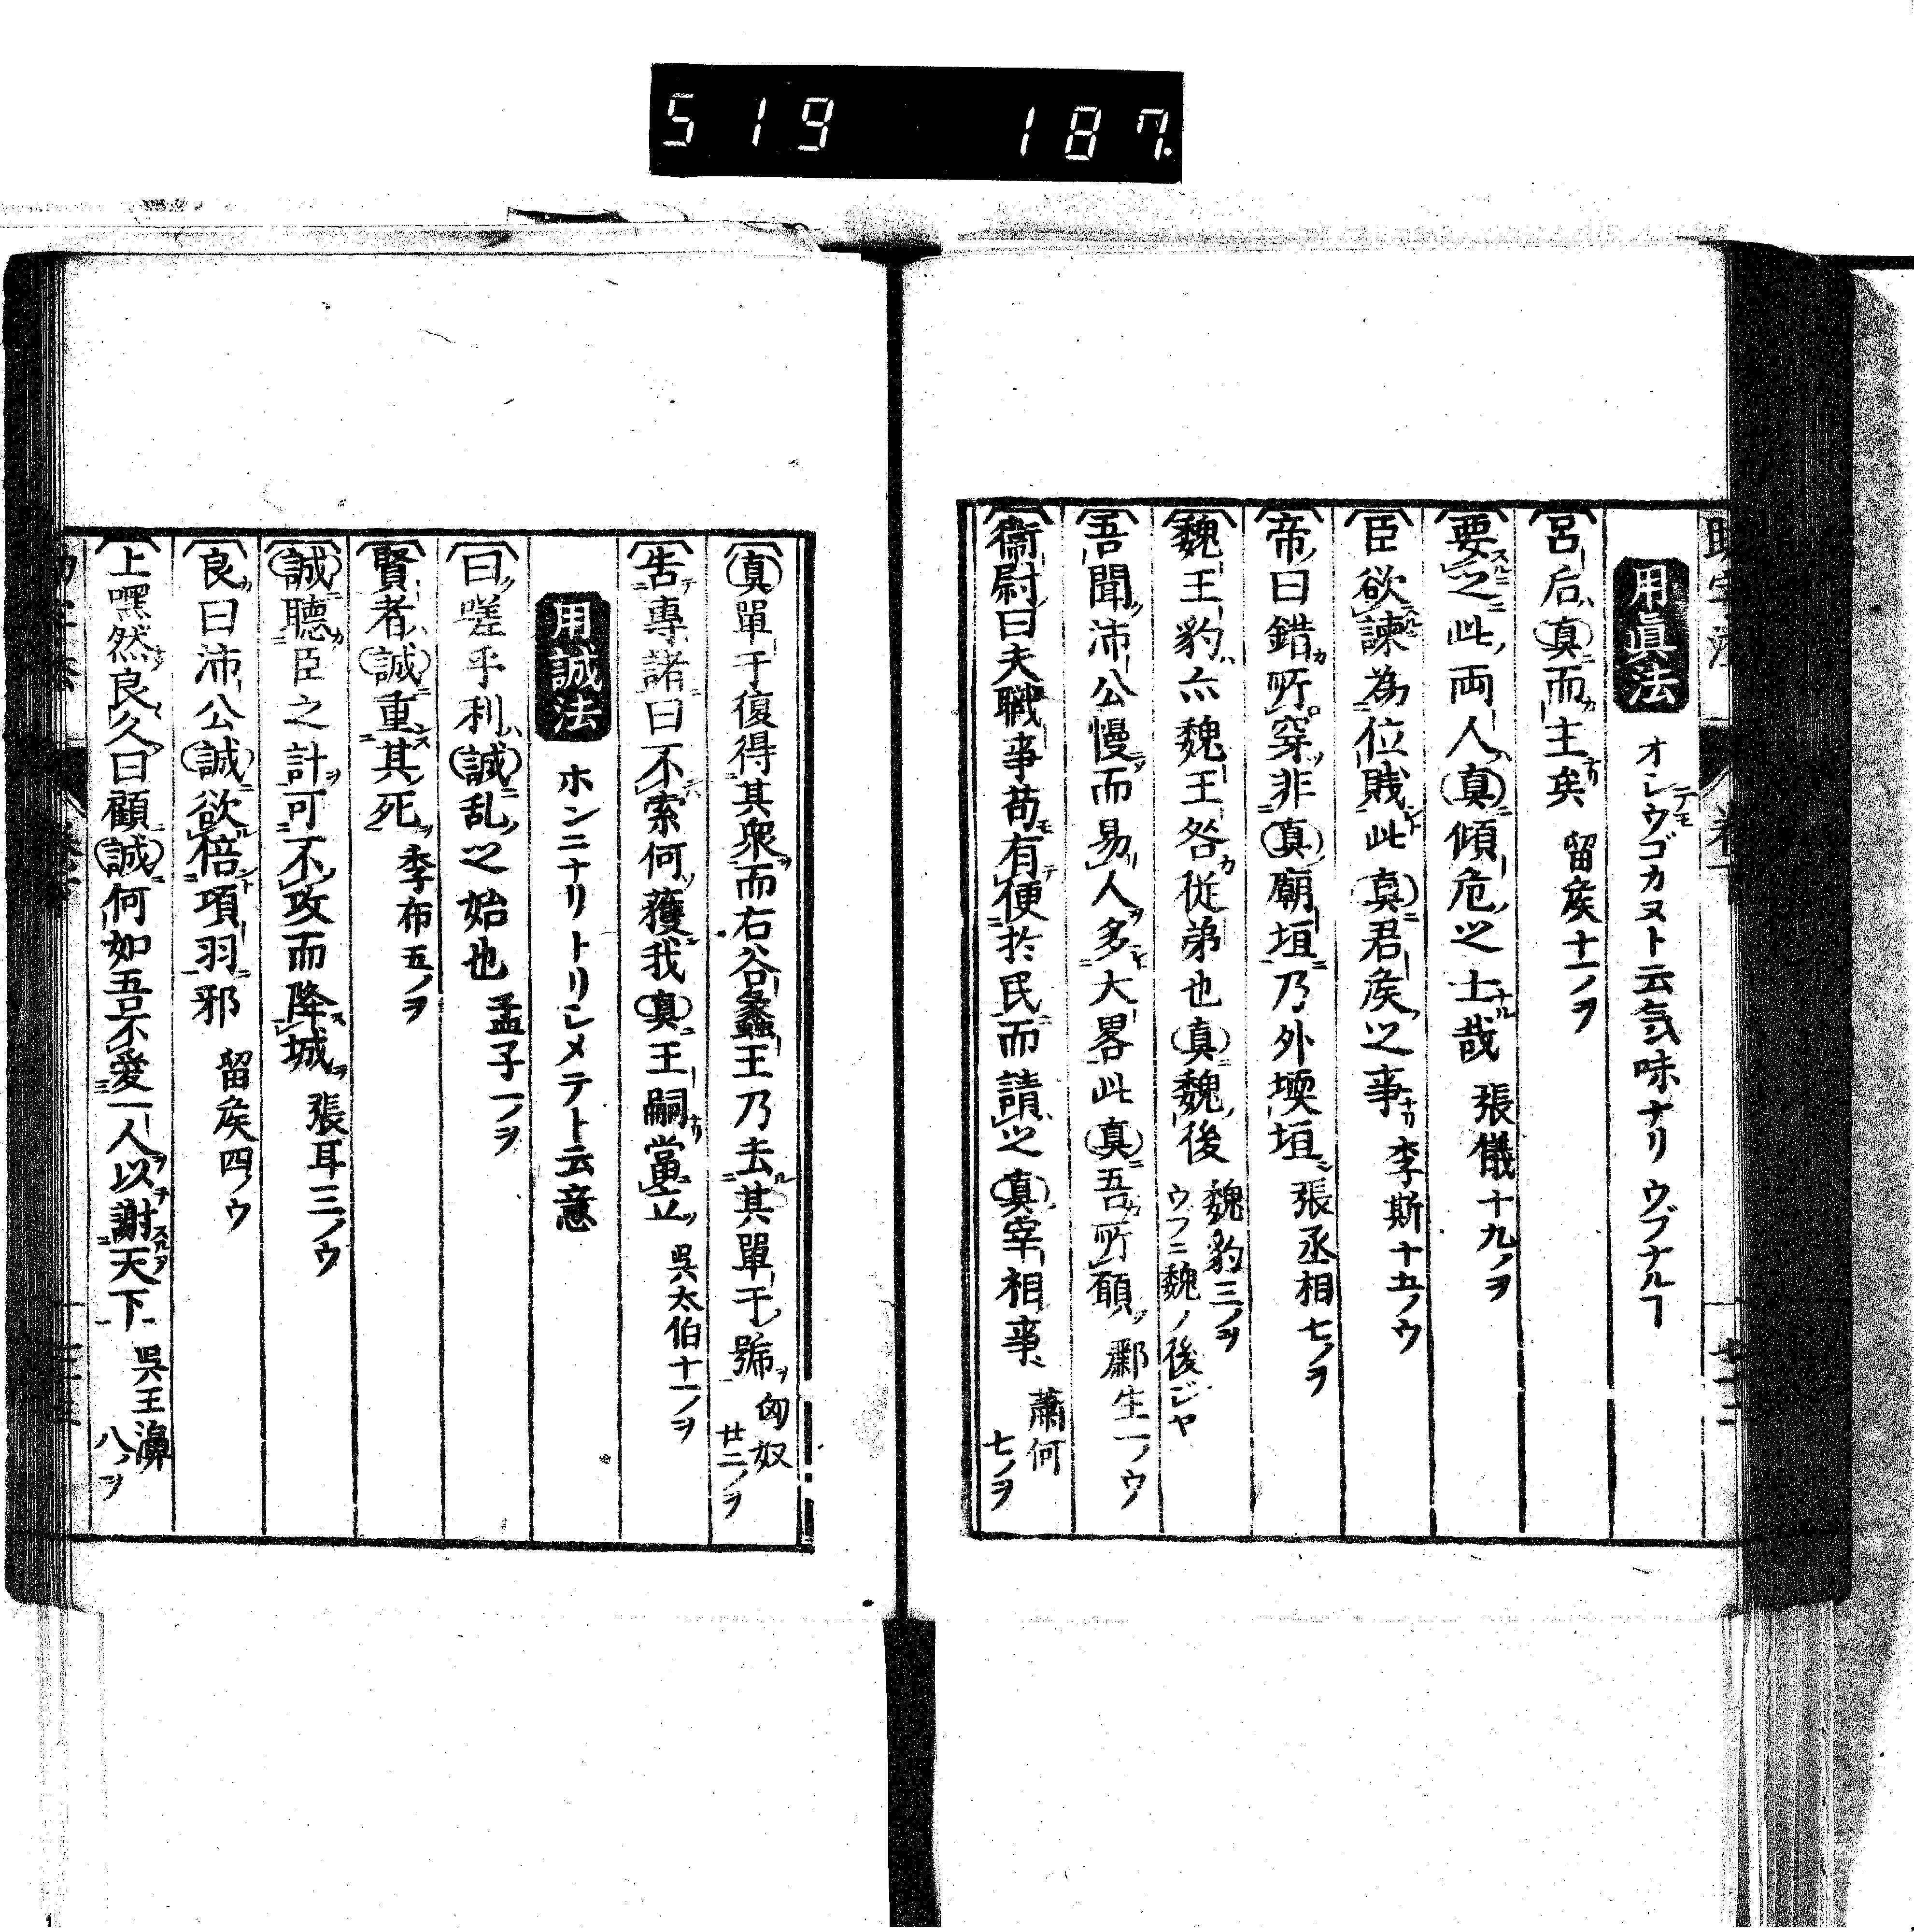 519 187
用眞法 オレウゴカヌト云気味ナリ ウブナルヿ
呂后真而主矣 留侯十一ノヲ
要之此両人真傾危之士哉 張儀十九ノヲ
臣欲諫為位賎此真君侯之事 李斯十五ノウ
帝曰錯所穿非真廟垣乃外堧垣 張丞相七ノヲ
魏王豹亦魏王咎従弟也真魏後 魏豹三ノヲ ウフニ魏ノ後ジヤ
吾聞沛公慢而易人多大畧此真吾所願 酈生一ノウ
衞尉曰夫職事苟有便於民而請之真宰相事 蕭何七ノヲ
真單于復得其衆而右谷蠡王乃去其單于號 匈奴廿二ノヲ
告專諸曰不索何獲我真王嗣當立 呉太伯十一ノヲ
用誠法 ホンニナリトリシメテト云意
曰嗟乎利誠乱之始也 孟子一ノヲ
賢者誠重其死 季布五ノヲ
誠聽臣之計可不攻而降城 張耳三ノウ
良曰沛公誠欲倍項羽邪 留侯四ウ
上嘿然良久曰顧誠何如吾不愛一人以謝天下 呉王濞八ノヲ